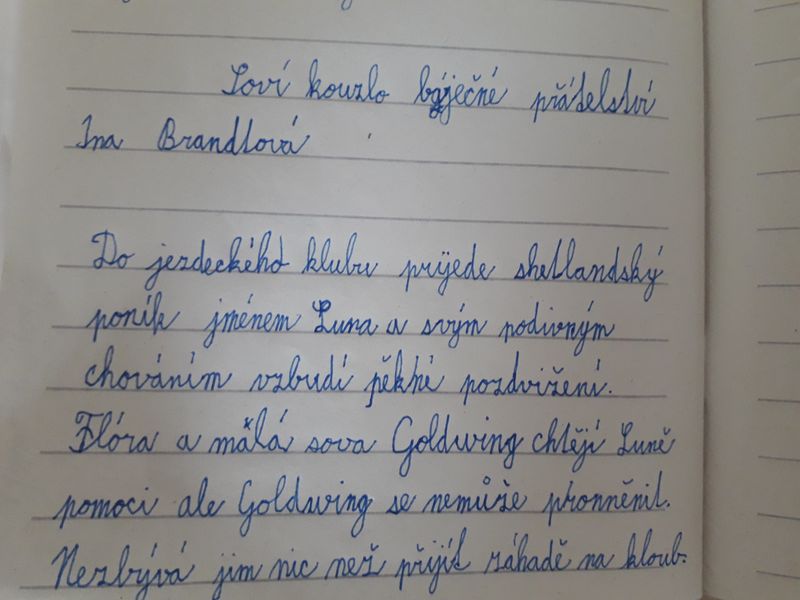 Soví kouzlo báječné přátelství
Ina Brandtová
Do jezdeckého klubu prijede shetlandský
poník jménem Luna a svým podivným
chováním vzbudí pěkné pozdvižení.
Flóra a malá sova Goldwing chtějí Luně
pomoci ale Goldwing se nemůže proměnit.
Nezbývá jim nic než přijít záhadě na kloub.